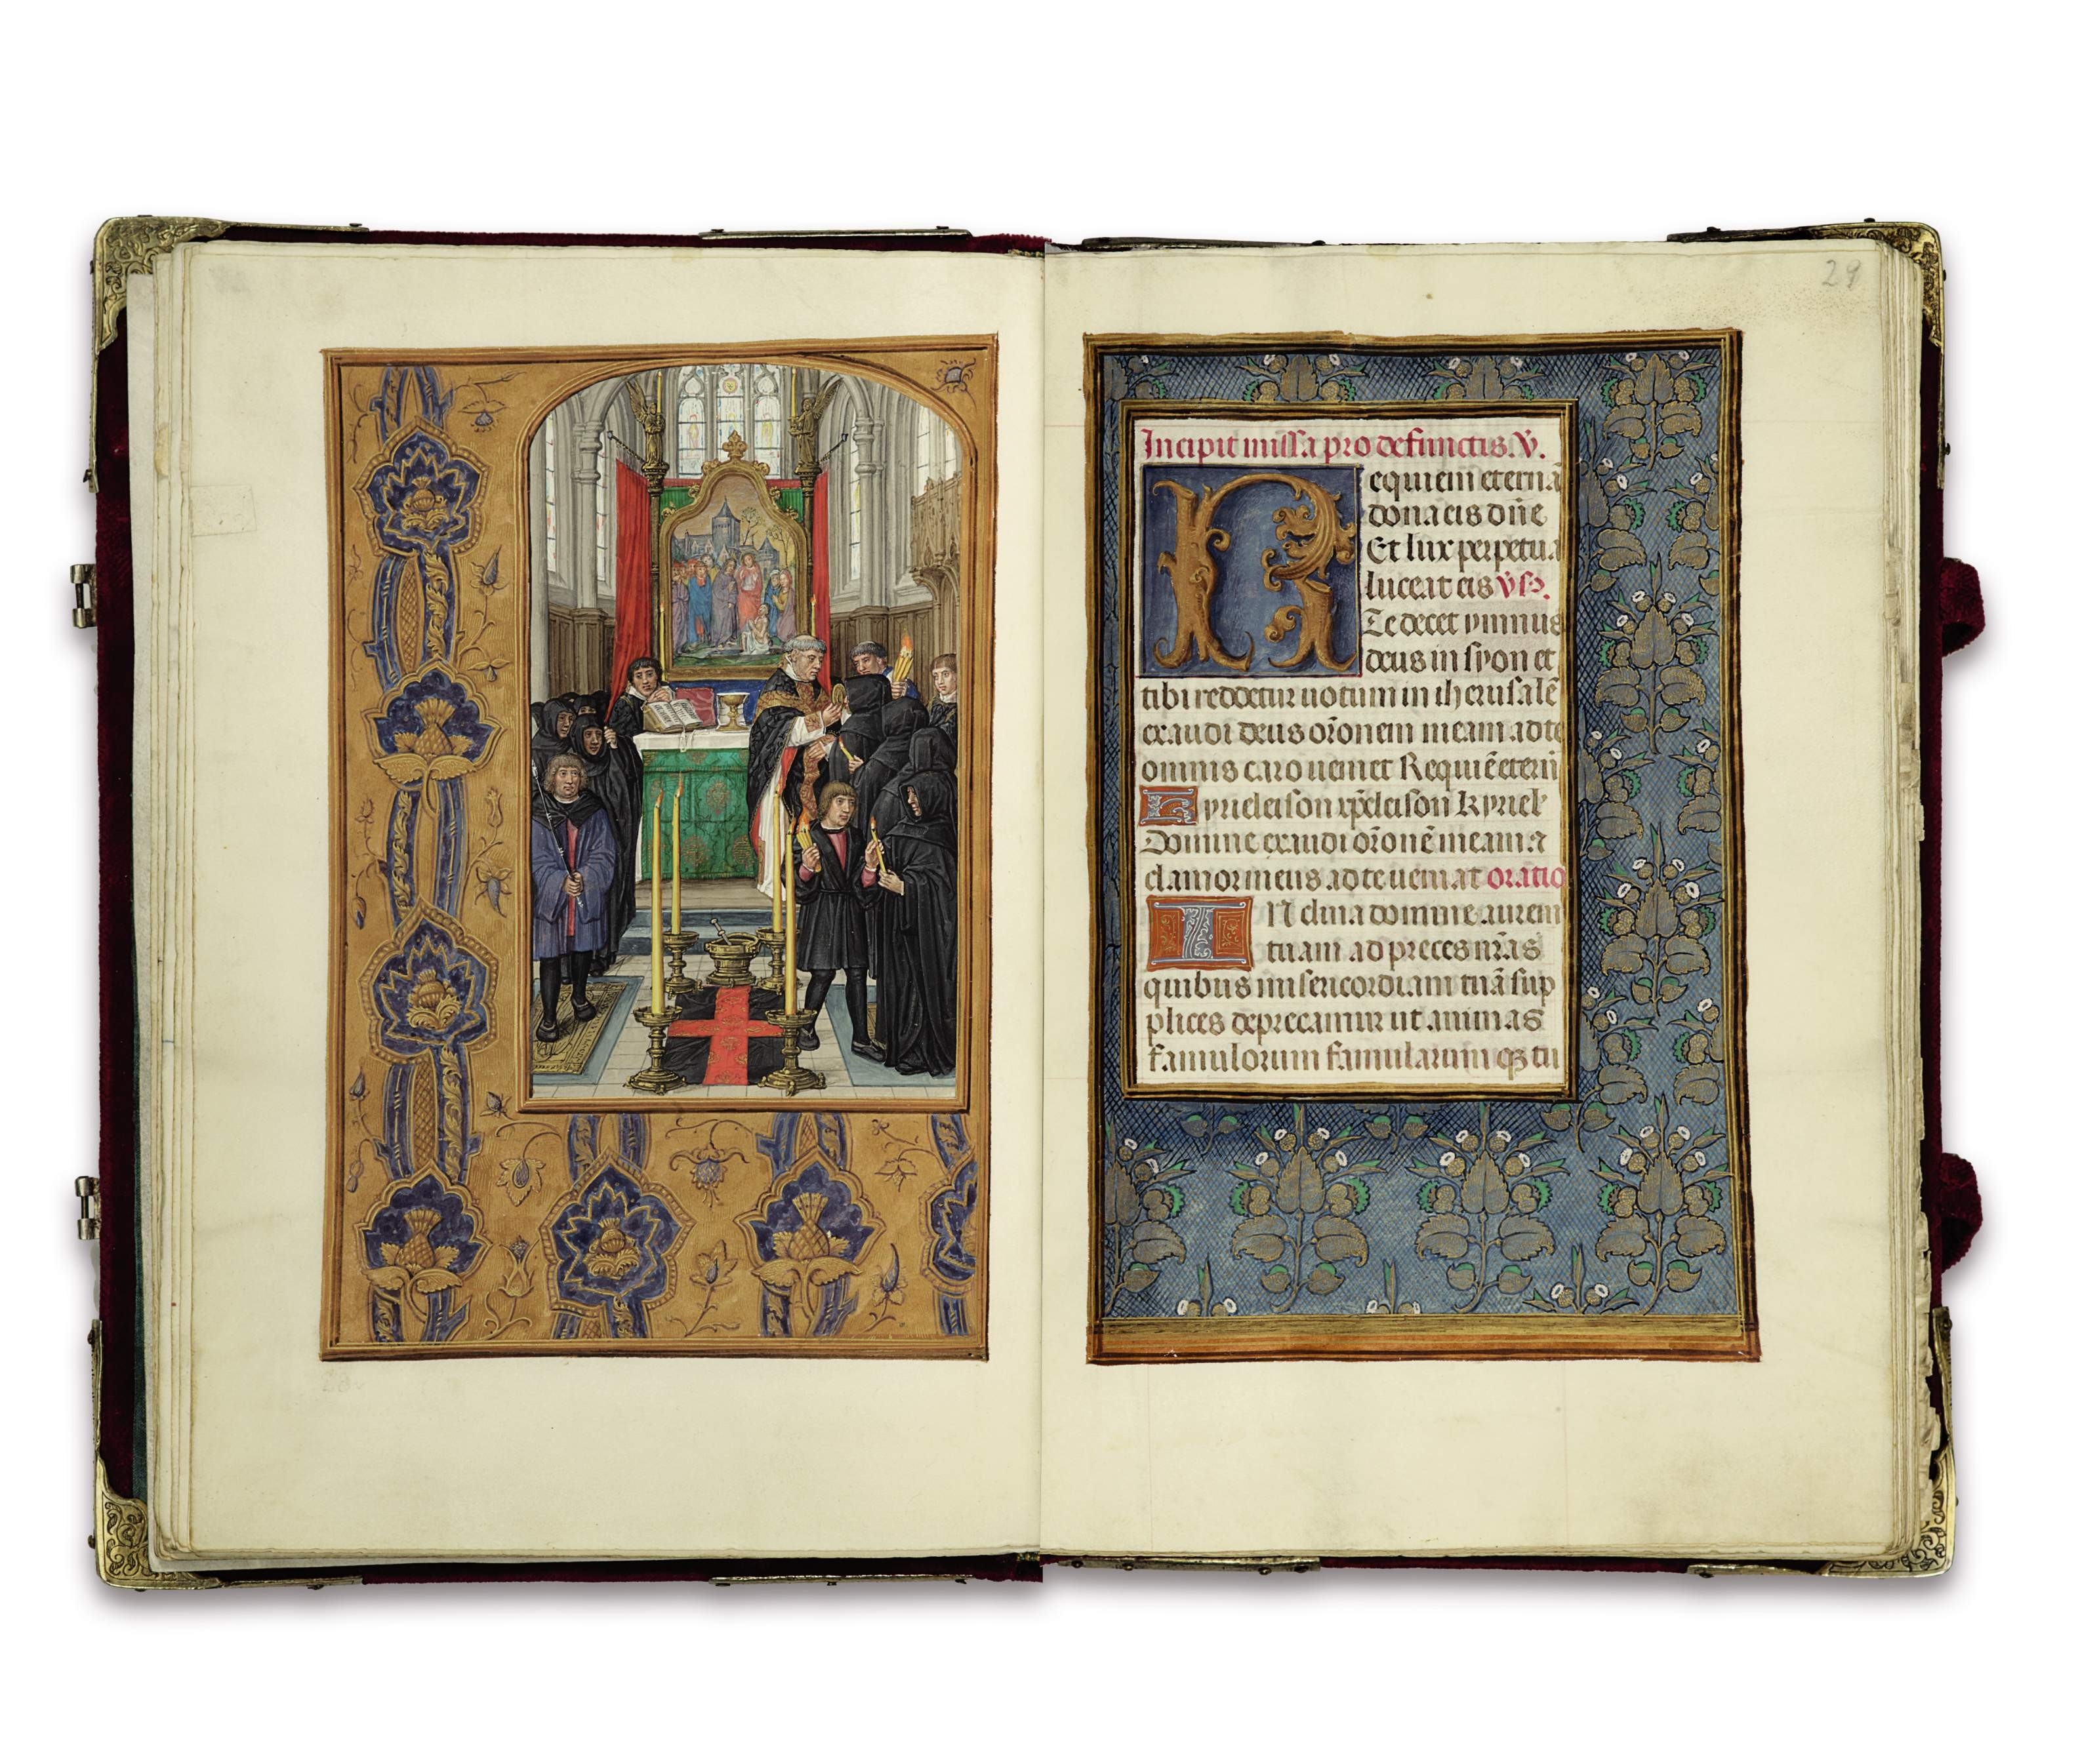 29
Incipit missa pro defunctis. V̄.
Requiem eternā
dona eis dn̄e
Et lux perpetua
luceat eis v̄s.
Te decet ymnus
deus in syon et
tibi reddetur uotum in iherusalē
exaudi deus or̄onem meam ad te
omnis caro ueniet Requiē etern̄
Kyrieleison xp̄eleison kyriel
Domine exaudi or̄onē meam a
clamor meus ad te ueniat oratio
INclina domine aurem
tuam ad preces nr̄as
quibus misericordiam tuā sup
plices deprecamur ut animas
famulorum famularum qꝫ tu